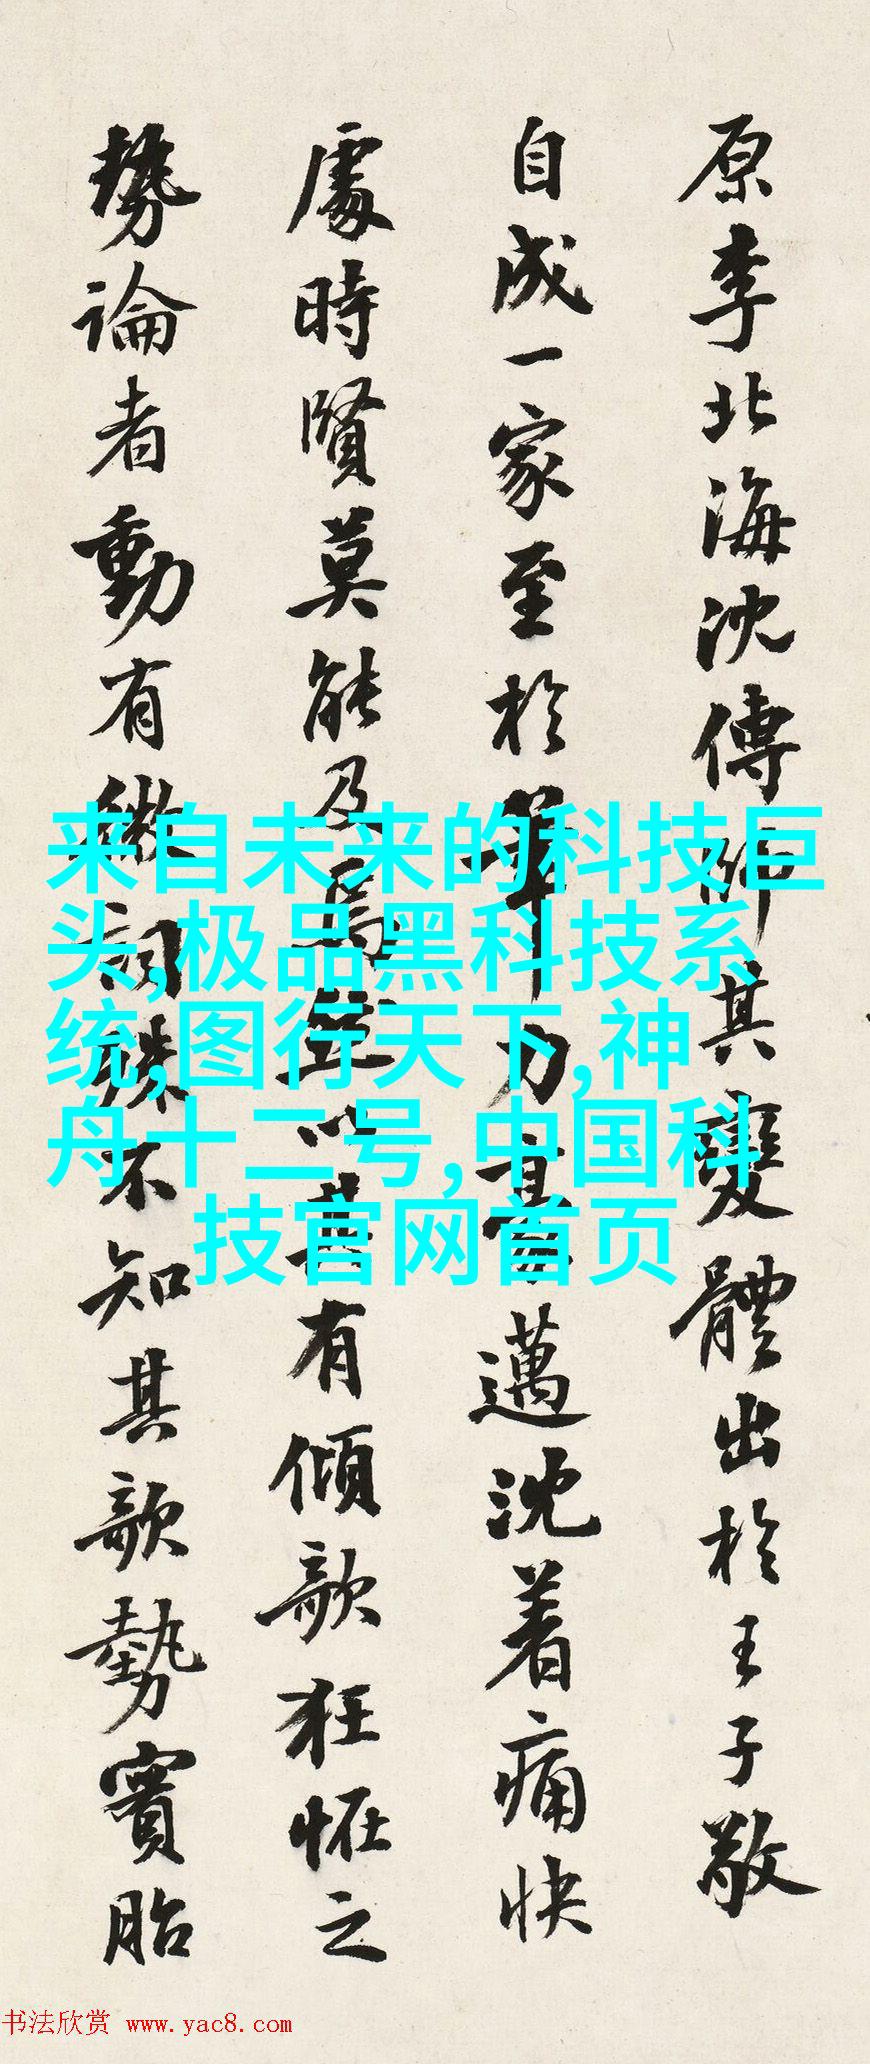 原李北海沈傳師其變體出於王子敬
自成一家至於筆力豪邁沈着痛快
處時賢莫能及焉並以其有傾欹狂怪之
勢論者動有微詞殊不知其欹勢實胎
来自未来的科技巨
头,极品黑科技系
统,图行天下,神
舟十二号,中国科
技官网首页
书法欣赏 www.yac8.com